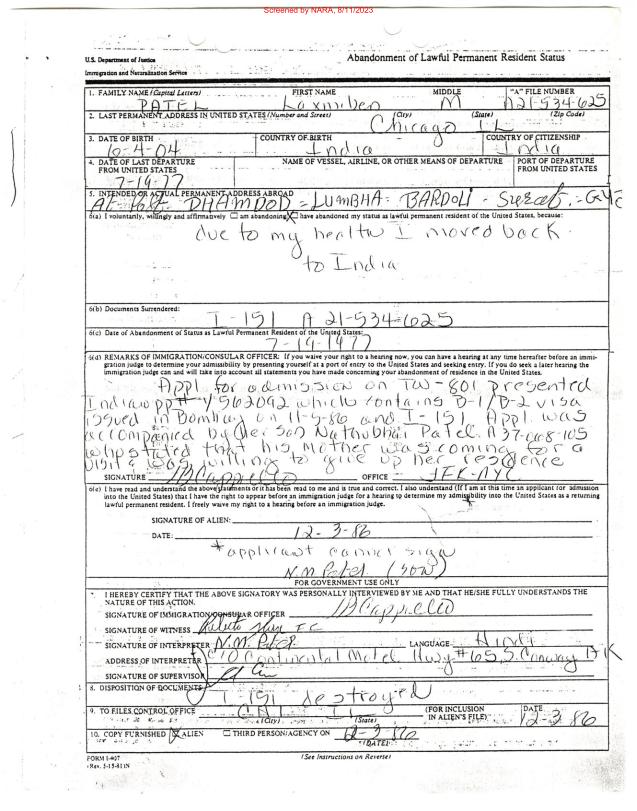 Screened by NARA, 8/11/2023
U.S. Department of Justice
Immigration and Naturalization Service
Abandonment of Lawful Permanent Resident Status
1. FAMILY NAME (Capital Letters) FIRST NAME MIDDLE "A" FILE NUMBER
PATEL Laxmiben M A21-534-625
2. LAST PERMANENT ADDRESS IN UNITED STATES (Number and Street) (City) (State) (Zip Code)
Chicago IL
3. DATE OF BIRTH COUNTRY OF BIRTH COUNTRY OF CITIZENSHIP
10-4-04 India India
4. DATE OF LAST DEPARTURE FROM UNITED STATES NAME OF VESSEL, AIRLINE, OR OTHER MEANS OF DEPARTURE PORT OF DEPARTURE FROM UNITED STATES
7-19-77
5. INTENDED OR ACTUAL PERMANENT ADDRESS ABROAD
At Post. DHAMDOD = LUMBHA - BARDOLI - Surat -
6(a) I voluntarily, willingly and affirmatively ☐ am abandoning ☒ have abandoned my status as lawful permanent resident of the United States, because:
due to my health I moved back
to India
6(b) Documents Surrendered:
I-151 A 21-534-625
6(c) Date of Abandonment of Status as Lawful Permanent Resident of the United States:
7-19-1977
6(d) REMARKS OF IMMIGRATION/CONSULAR OFFICER: If you waive your right to a hearing now, you can have a hearing at any time hereafter before an immi-
gration judge to determine your admissibility by presenting yourself at a port of entry to the United States and seeking entry. If you do seek a later hearing the
immigration judge can and will take into account all statements you have made concerning your abandonment of residence in the United States.
Appl. for admission on TW-801 presented
India pp# Y 562092 which contains B-1/B-2 visa
issued in Bombay on 11-5-86 and I-151. Appl. was
accompanied by her son Nathubhai Patel A37-068-105
who stated that his mother was coming for a
visit & was willing to give up her residence
SIGNATURE OFFICE JFK-NYC
6(e) I have read and understand the above statements or it has been read to me and is true and correct. I also understand (If I am at this time an applicant for admission
into the United States) that I have the right to appear before an immigration judge for a hearing to determine my admissibility into the United States as a returning
lawful permanent resident. I freely waive my right to a hearing before an immigration judge.
SIGNATURE OF ALIEN: *
DATE: 12-3-86
*applicant cannot sign
N.M. Patel (SON)
FOR GOVERNMENT USE ONLY
7. I HEREBY CERTIFY THAT THE ABOVE SIGNATORY WAS PERSONALLY INTERVIEWED BY ME AND THAT HE/SHE FULLY UNDERSTANDS THE
NATURE OF THIS ACTION.
SIGNATURE OF IMMIGRATION/CONSULAR OFFICER
SIGNATURE OF WITNESS
SIGNATURE OF INTERPRETER N.M. Patel LANGUAGE Hindi
ADDRESS OF INTERPRETER C/O Continental Motel Hwy #65 S. Conway ARK
SIGNATURE OF SUPERVISOR
8. DISPOSITION OF DOCUMENTS
I-151 destroyed
9. TO FILES CONTROL OFFICE (City) (State) (FOR INCLUSION IN ALIEN'S FILE) DATE
12-3-86
10. COPY FURNISHED ☒ ALIEN ☐ THIRD PERSON/AGENCY ON 12-3-86
(DATE)
FORM I-407
(Rev. 5-15-81)N
(See Instructions on Reverse)